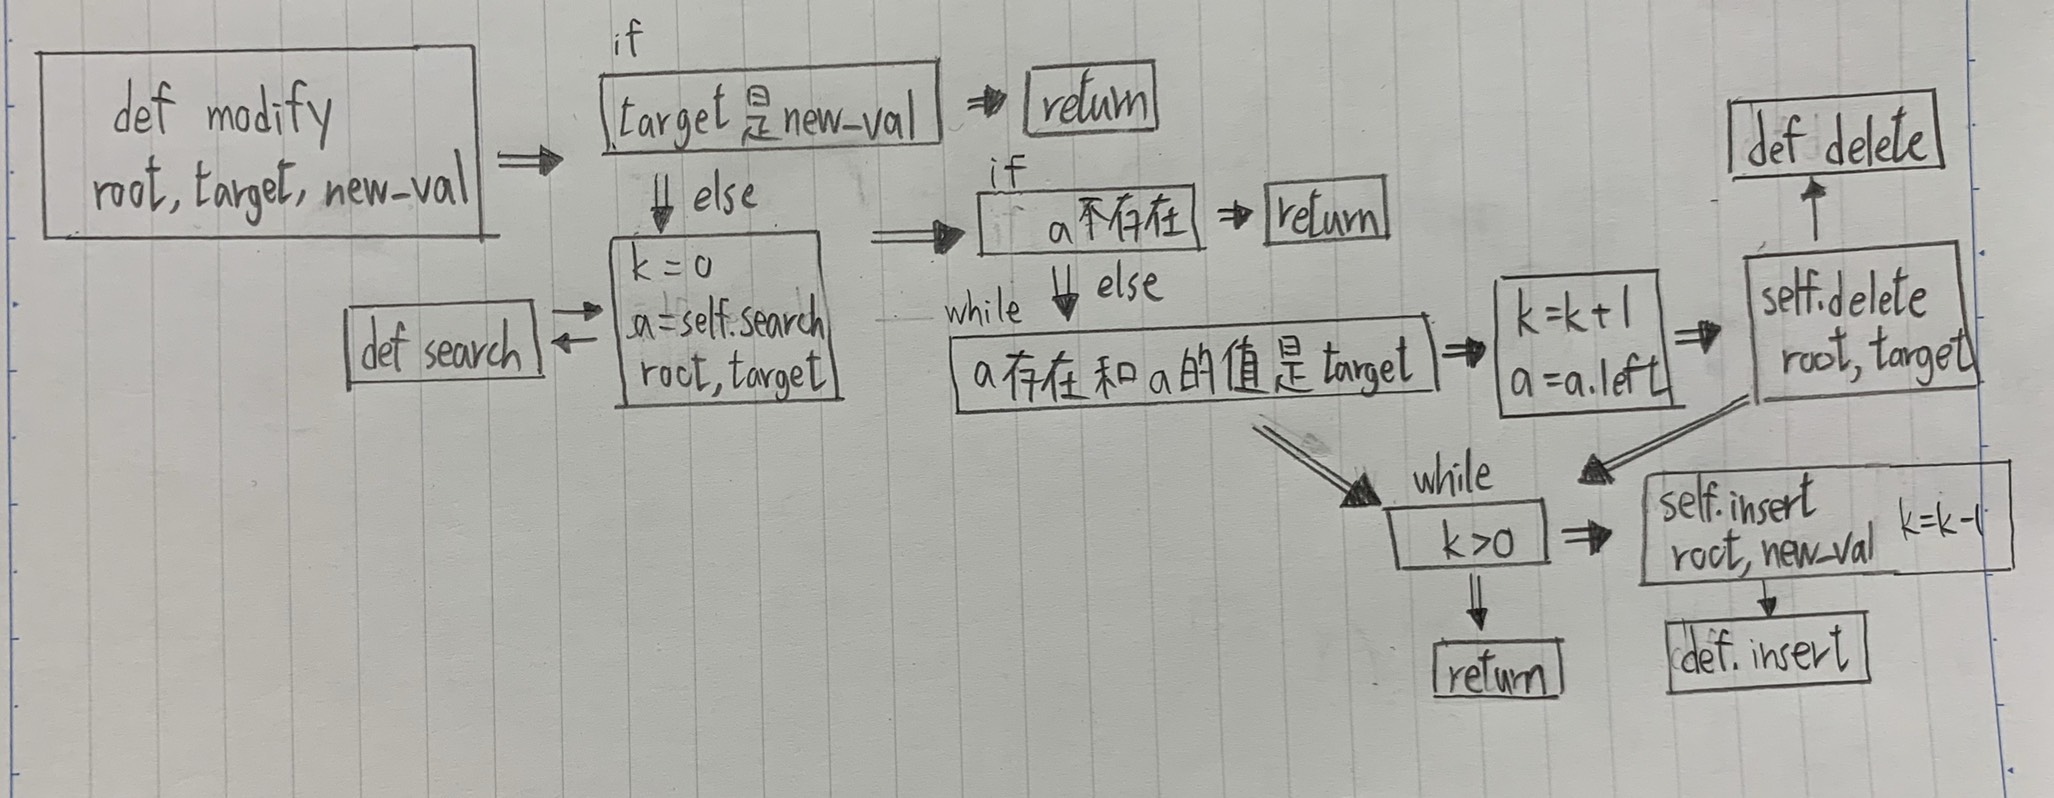 def modify
root, target, new_val
if
target是new_val
return
else
k = 0
a=self.search
root, target
def search
if
a不存在
return
else
while
a存在和a的值是target
k=k+1
a=a.left
self.delete
root, target
def delete
while
k>0
return
self.insert
root, new_val k=k-1
def.insert